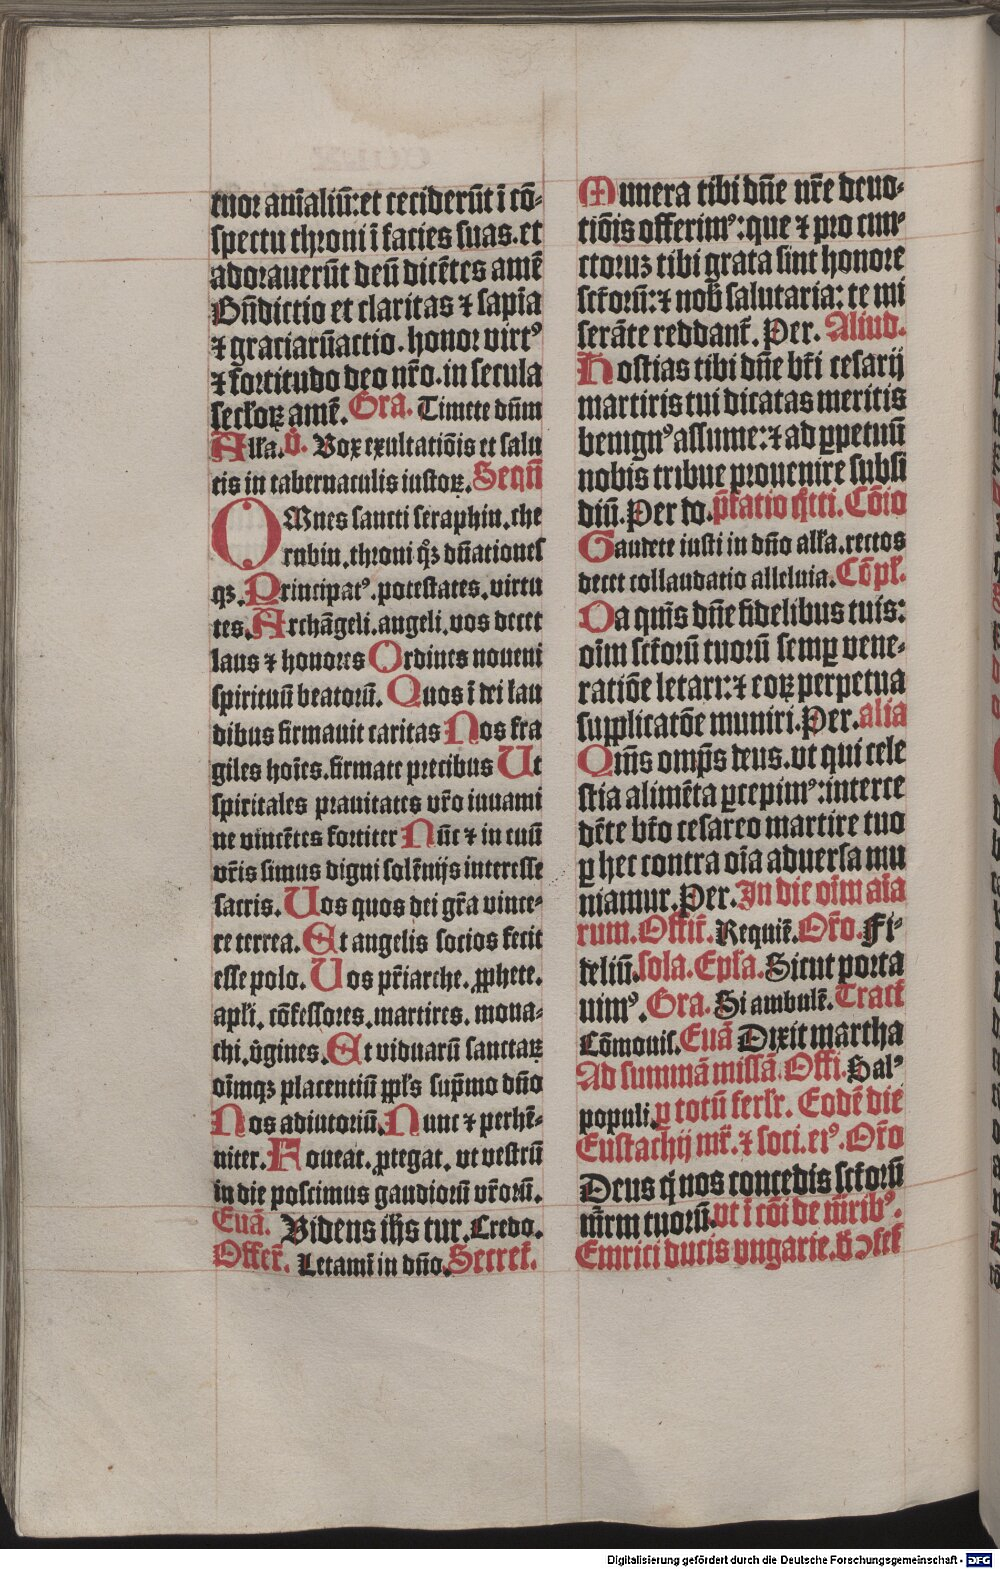 tuor anīaliū: et ceciderūt ī cō-
spectu throni ī facies suas. et
adorauerūt deū dicētes amē
Bn̄dictio et claritas ⁊ sapīa
⁊ graciarūactio. honor virtꝰ
⁊ fortitudo deo nr̄o. in secula
secl'oꝝ amē. Gra. Timete dn̄m
Alla. v̊. Vox exultatiōis et salu
tis in tabernaculis iustoꝝ. Seqn̄
OMnes sancti seraphin. che
rubin. throni qꝫ dn̄ationes
qꝫ. Principatꝰ. potestates. virtu
tes. Archāgeli. angeli. vos decet
laus ⁊ honores Ordines noueni
spirituū beatorū. Quos ī dei lau
dibus firmauit caritas Nos fra
giles hoīes. firmate precibus Ut
spiritales prauitates vr̄o iuuami
ne vincētes fortiter Nūc ⁊ in euū
vr̄is simus digni solēnijs interesse
sacris. Uos quos dei gr̄a vince-
re terrea. Et angelis socios fecit
esse polo. Uos pr̄iarche. ꝓphete.
apl'i. cōfessores. martires. mona-
chi. v̓gines. Et viduarū sanctaꝝ
oīmqꝫ placentiū ppl's sup̄mo dn̄o
Nos adiutoriū. Nunc ⁊ perhē-
niter. Foueat. ꝓtegat. vt vestrū
in die poscimus gaudiorū vr̄orū.
Euā. Videns ih̄s tur. Credo.
Offer̄. Letamī in dn̄o. Secret̄.
Munera tibi dn̄e nr̄e deuo-
tiōis offerimꝰ: que ⁊ pro cun-
ctoruꝫ tibi grata sint honore
sct̄orū: ⁊ nob̄ salutaria: te mi
serāte reddant̄. Per. Aliud.
Hostias tibi dn̄e bt̄i cesarij
martiris tui dicatas meritis
benignꝰ assume: ⁊ ad ꝑpetuū
nobis tribue prouenire subsi
diū. Per do. p̄fatio q̄tti. Cōio
Gaudete iusti in dn̄o all'a. rectos
decet collaudatio alleluia. Cōpl'.
Da qm̄s dn̄e fidelibus tuis:
oīm sct̄orū tuorū semꝑ vene-
ratiōe letari: ⁊ eoꝝ perpetua
supplicatōe muniri. Per. alia
Qm̄s omp̄s deus. vt qui cele
stia alimēta ꝑcepimꝰ: interce
dēte bt̄o cesareo martire tuo
ꝑ hec contra oīa aduersa mu
niamur. Per. In die oīm aīa
rum. Offic̄. Requiē. Or̄o. Fi-
deliū. sola. Epl'a. Sicut porta
uimꝰ. Gra. Si ambulē. Tract̄
Cōmouis. Euā Dixit martha
Ad summā missā. Offi. Salꝰ
populi. ꝑ totū ferl'r. Eodē die
Eustachij mr̄. ⁊ soci. eiꝰ. Or̄o
Deus q̄ nos concedis sct̄orū
mr̄m tuorū. vt ī cōi de mr̄ibꝰ.
Emrici ducis vngarie. b̄ ꝯfes̄
Digitalisierung gefördert durch die Deutsche Forschungsgemeinschaft - DFG